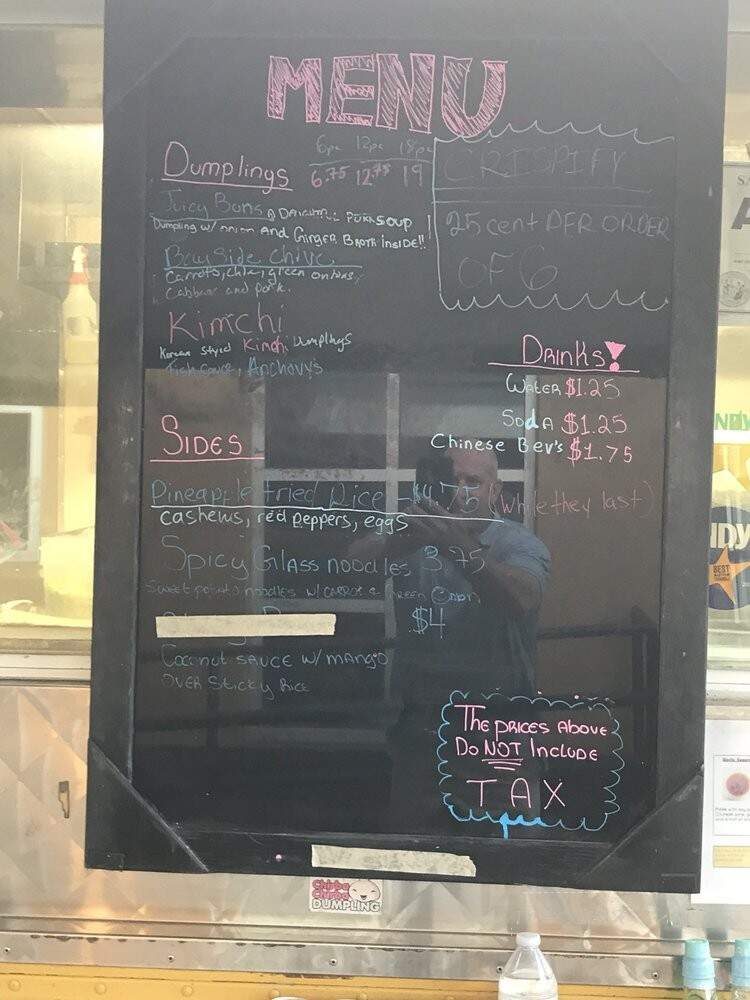 MENU
6pc 12pc 18pc
Dumplings 6.75 12.75 19
Juicy Buns A Dumpling w/ onion And Ginger Broth inside!!
PORK SOUP
Bay Side Chive
Carrots, chive, green onions,
Cabbage and pork.
Kimchi
Korean Styled Kimchi Dumplings
Fish sauce, Anchovy's
CRISPIFY
25 cent PER ORDER
OF 6
Drinks!
Water $1.25
Soda $1.25
Chinese Bev's $1.75
SIDES
Pineapple fried Rice - $4.75 (while they last)
cashews, red peppers, eggs
Spicy Glass noodles 3.75
Sweet potato noodles w/ carrot & Green Onion
$4
Coconut SAUCE w/ mango
OVER Sticky Rice
The prices Above
Do NOT Include
TAX
Chirba
Chirba
DUMPLING
NDY
IDY
BEST